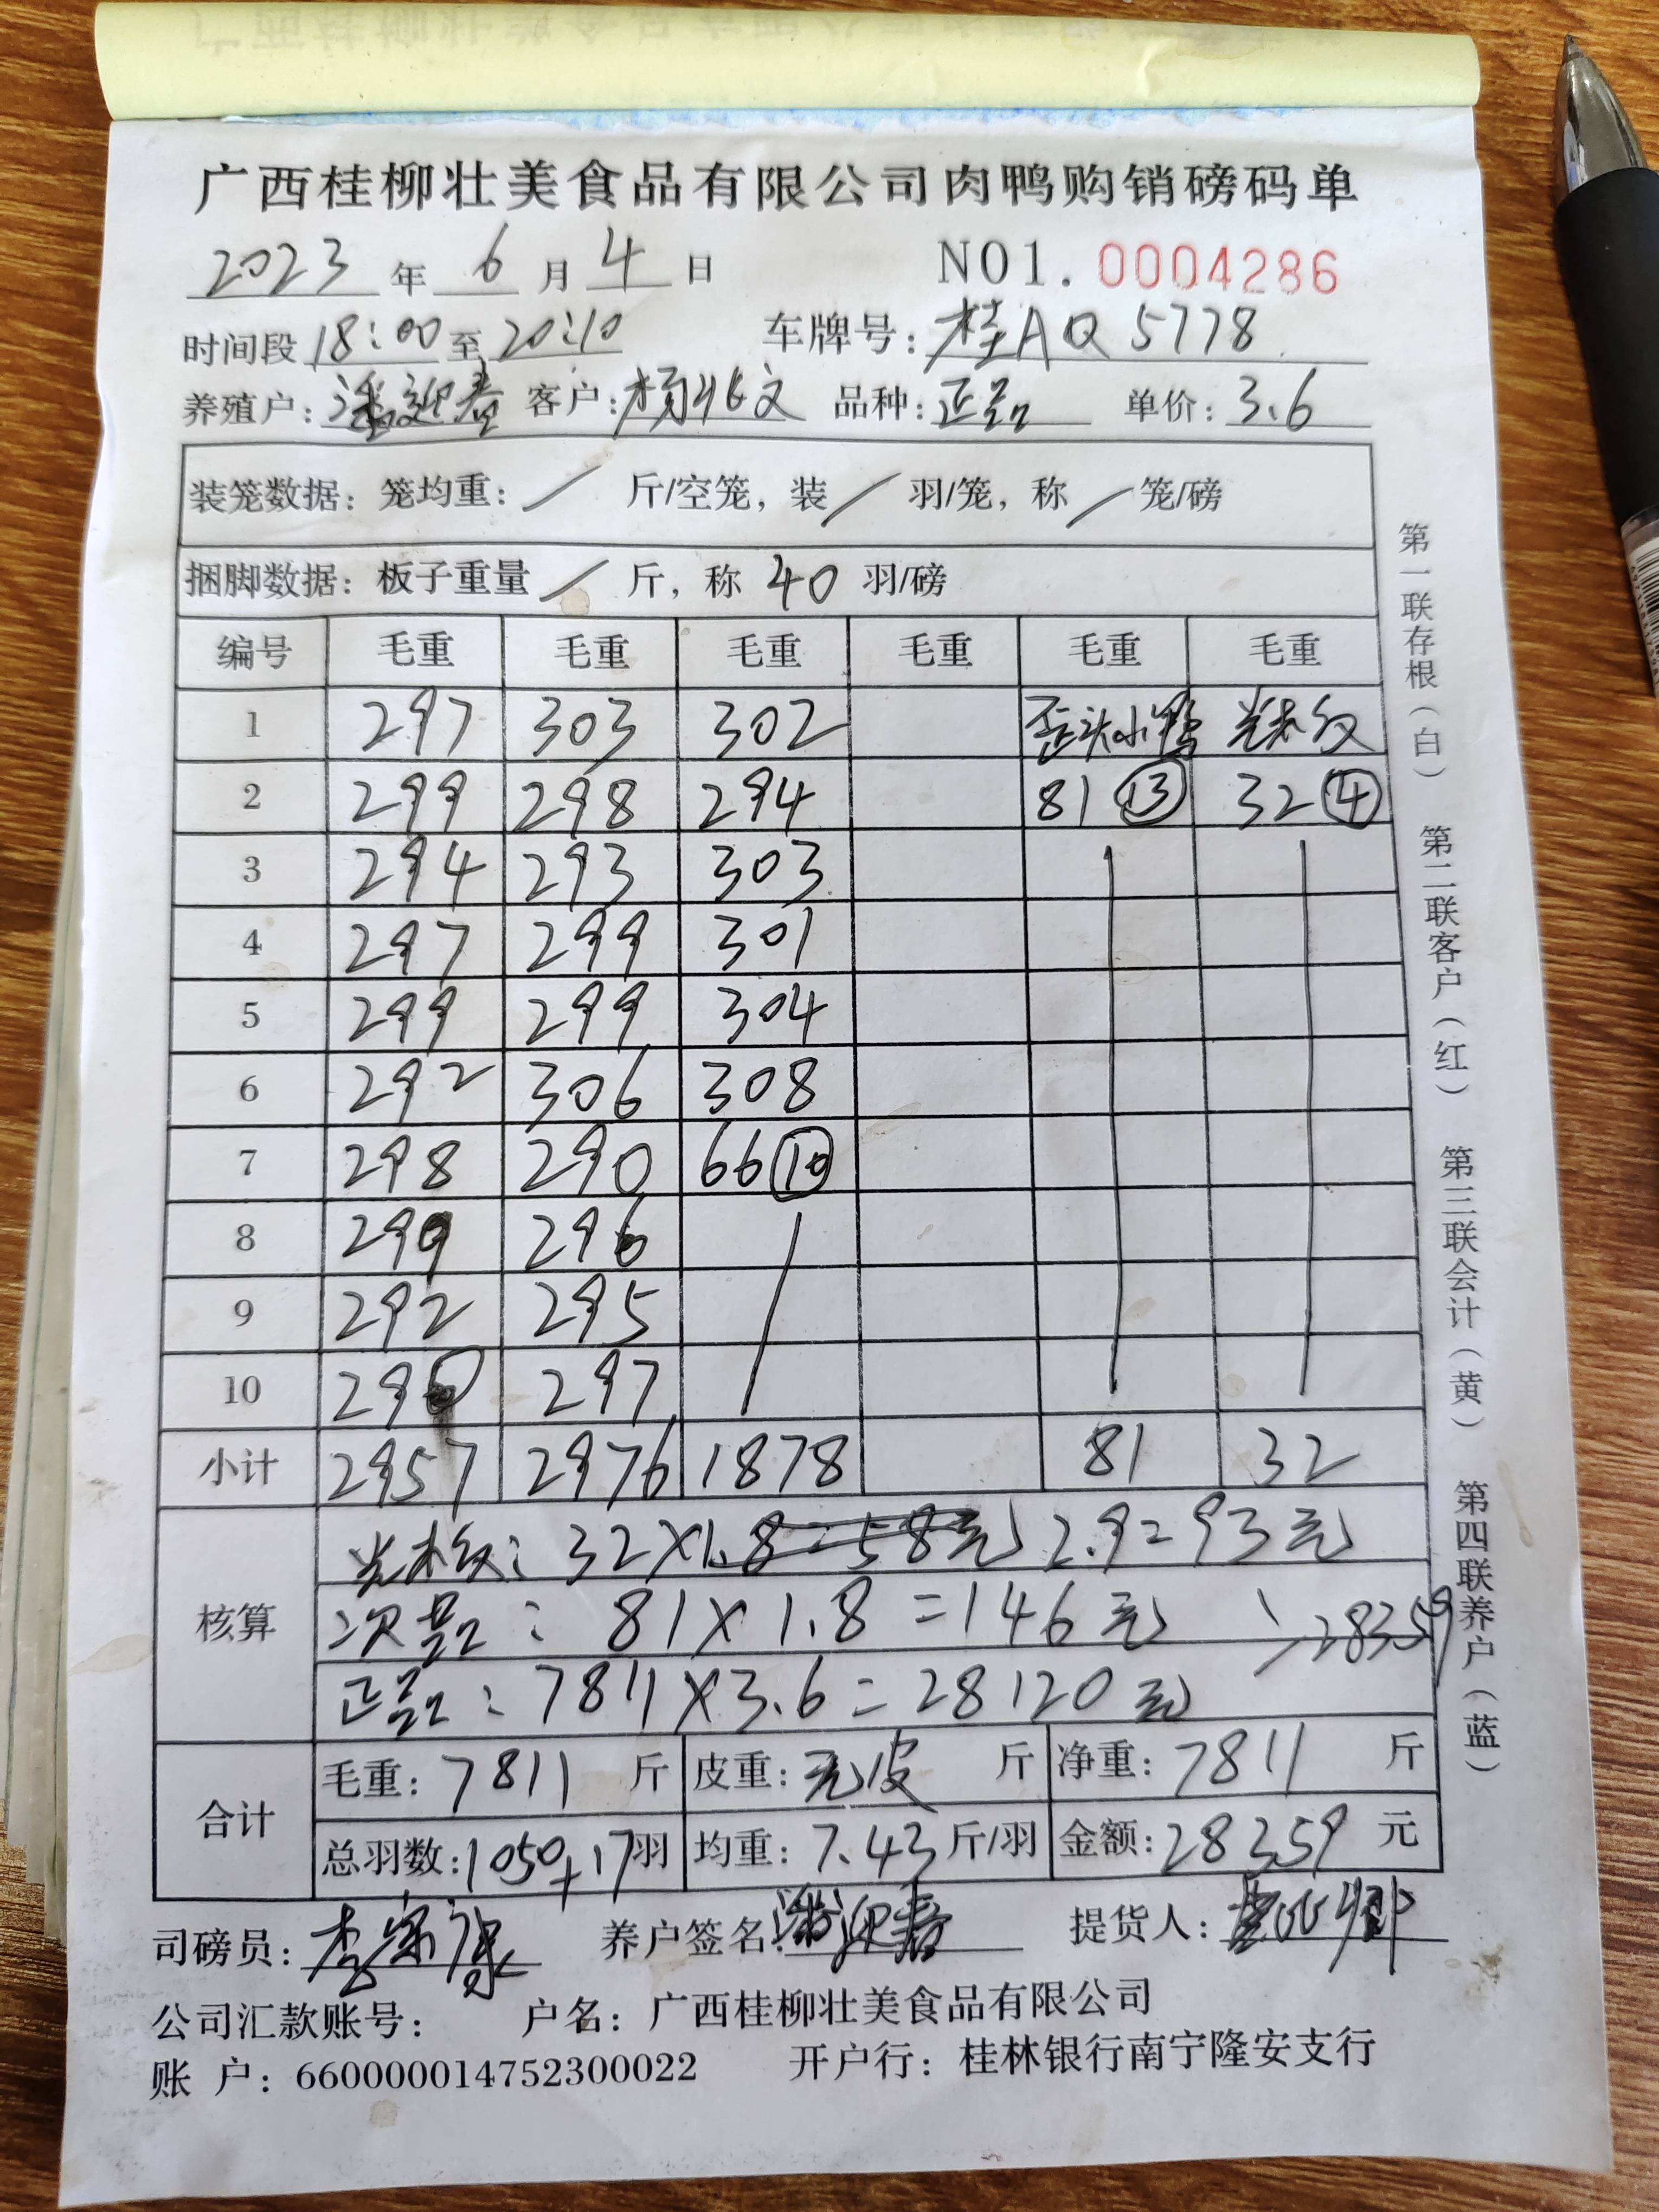 广西桂柳壮美食品有限公司肉鸭购销磅码单
2023 年 6 月 4 日 NO1. 0004286
时间段 18:00 至 20:10 车牌号: 桂AQ5778
养殖户: 潘迎春 客户: 杨兆文 品种: 正品 单价: 3.6
装笼数据: 笼均重: / 斤/空笼, 装 / 羽/笼, 称 / 笼/磅
捆脚数据: 板子重量 / 斤, 称 40 羽/磅
编号 毛重 毛重 毛重 毛重 毛重 毛重
1 297 303 302 歪头小鸭
2 299 298 294 81 ⑬ 32 ④
3 294 293 303
4 297 299 301
5 299 299 304
6 292 306 308
7 298 290 66 ⑩
8 299 296
9 292 295
10 290 297
小计 2957 2976 1878 81 32
核算
32×1.8=58元 2.9=93元
次品: 81×1.8=146元
28359
正品: 7811×3.6=28120元
合计
毛重: 7811 斤 皮重: 无皮 斤 净重: 7811 斤
总羽数: 1050+17 羽 均重: 7.43 斤/羽 金额: 28359 元
司磅员: 养户签名: 潘迎春 提货人:
公司汇款账号: 户名: 广西桂柳壮美食品有限公司
账 户: 660000014752300022 开户行: 桂林银行南宁隆安支行
第一联存根(白) 第二联客户(红) 第三联会计(黄) 第四联养户(蓝)